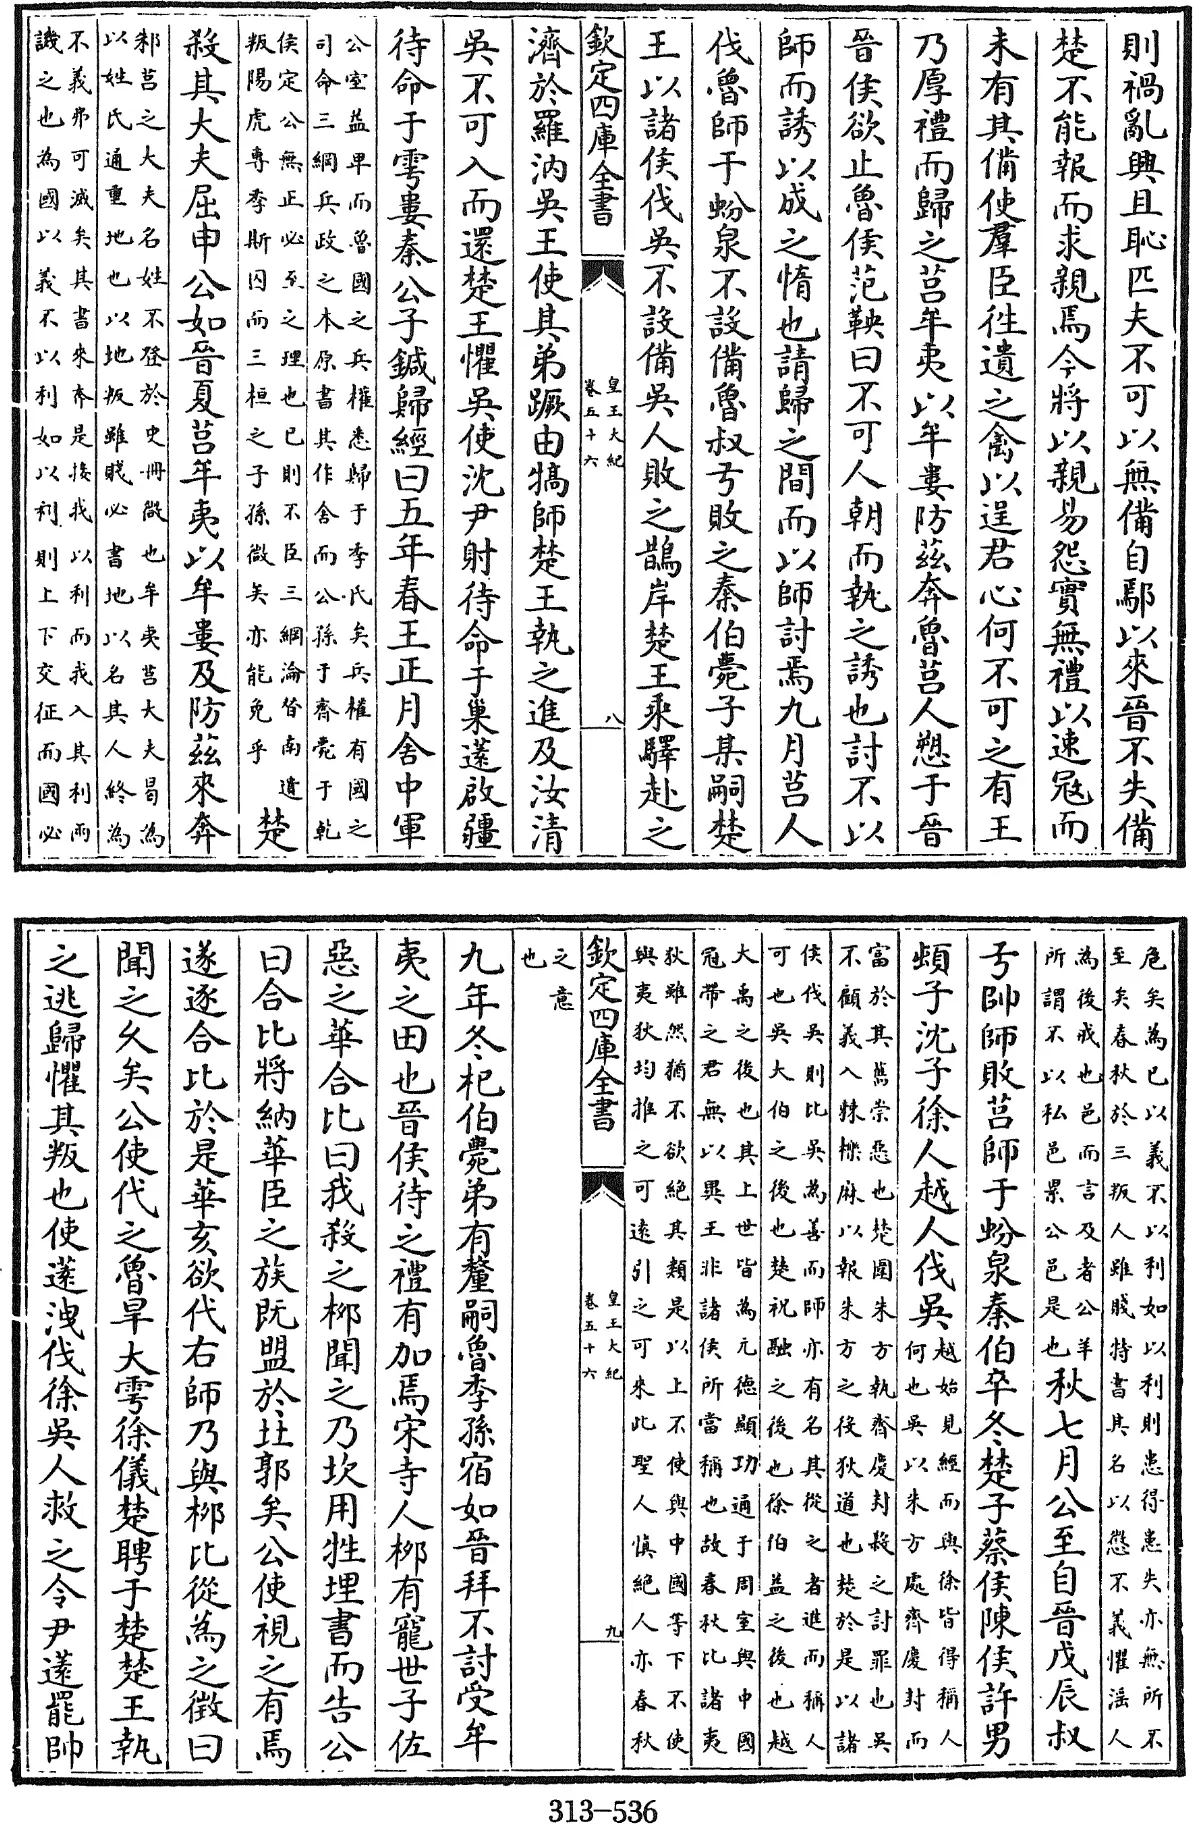 則禍亂興且恥匹夫不可以無備自鄢以來晉不失備
楚不能報而求親焉今將以親易怨實無禮以速冦而
未有其備使羣臣徃遺之禽以逞君心何不可之有王
乃厚禮而歸之莒牟夷以牟婁防兹奔魯莒人愬于晉
晉侯欲止魯侯范鞅曰不可人朝而執之誘也討不以
師而誘以成之惰也請歸之間而以師討焉九月莒人
伐魯師于蚡泉不設備魯叔弓敗之秦伯薨子某嗣楚
王以諸侯伐吳不設備吳人敗之鵲岸楚王乘驛赴之
欽定四庫全書
皇王大紀
卷五十六
八
濟於羅汭吳王使其弟蹶由犒師楚王執之進及汝清
吳不可入而還楚王懼吳使沈尹射待命于巢薳啟疆
待命于雩婁秦公子鍼歸經曰五年春王正月舍中軍
公室益卑而魯國之兵權悉歸于季氏矣兵權有國之
司命三綱兵政之本原書其作舍而公孫于齊薨于乾
侯定公無正必至之理也已則不臣三綱淪胥南遺
叛陽虎專季斯囚而三桓之子孫微矣亦能免乎
楚
殺其大夫屈申公如晉夏莒牟夷以牟婁及防兹來奔
邾莒之大夫名姓不登於史冊微也牟夷莒大夫曷為
以姓氏通重地也以地叛雖賤必書地以名其人終為
不義弗可滅矣其書來奔是接我以利而我入其利兩
譏之也為國以義不以利如以利則上下交征而國必
危矣為已以義不以利如以利則患得患失亦無所不
至矣春秋於三叛人雖賤特書其名以懲不義懼滛人
為後戒也邑而言及者公羊
所謂不以私邑累公邑是也
秋七月公至自晉戊辰叔
弓帥師敗莒師于蚡泉秦伯卒冬楚子蔡侯陳侯許男
頓子沈子徐人越人伐吳
越始見經而與徐皆得稱人
何也吳以朱方處齊慶封而
富於其舊崇惡也楚圍朱方執齊慶封殺之討罪也吳
不顧義入棘櫟麻以報朱方之役狄道也楚於是以諸
侯伐吳則比吳為善而師亦有名其從之者進而稱人
可也吳大伯之後也楚祝融之後也徐伯益之後也越
大禹之後也其上世皆為元德顯功通于周室與中國
冠帶之君無以異王非諸侯所當稱也故春秋比諸夷
狄雖然猶不欲絶其類是以上不使與中國等下不使
與夷狄均推之可遠引之可來此聖人慎絶人亦春秋
欽定四庫全書
皇王大紀
卷五十六
九
之意
也
九年冬杞伯薨弟有釐嗣魯季孫宿如晉拜不討受牟
夷之田也晉侯待之禮有加焉宋寺人栁有寵世子佐
惡之華合比曰我殺之栁聞之乃坎用牲埋書而告公
曰合比將納華臣之族既盟於北郭矣公使視之有焉
遂逐合比於是華亥欲代右師乃與栁比從為之徵曰
聞之久矣公使代之魯旱大雩徐儀楚聘于楚楚王執
之逃歸懼其叛也使薳洩伐徐吳人救之令尹薳罷帥
313-536